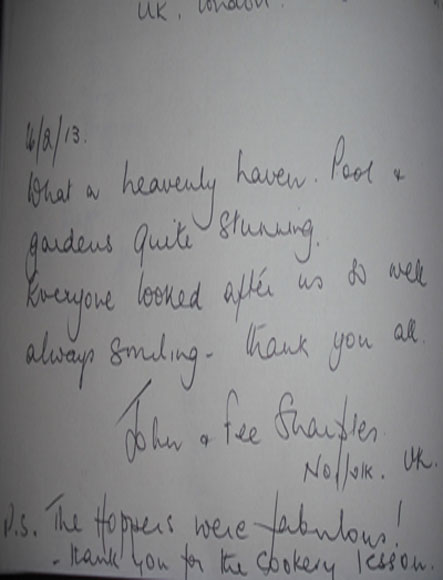 UK. London.
16/2/13.
What a heavenly haven. Pool &
gardens quite stunning.
Everyone looked after us so well
always smiling - thank you all.
John & Fee
Norfolk. UK.
P.S. The Hoppers were fabulous!
- thank you for the cookery lesson.